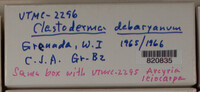 VTMC-2296
Clastoderma debaryanum
Grenada, W.I 1965/1966
C.J.A. Gr-B2
820835
Same box with VTMC-2295 Arcyria
leiocarpa